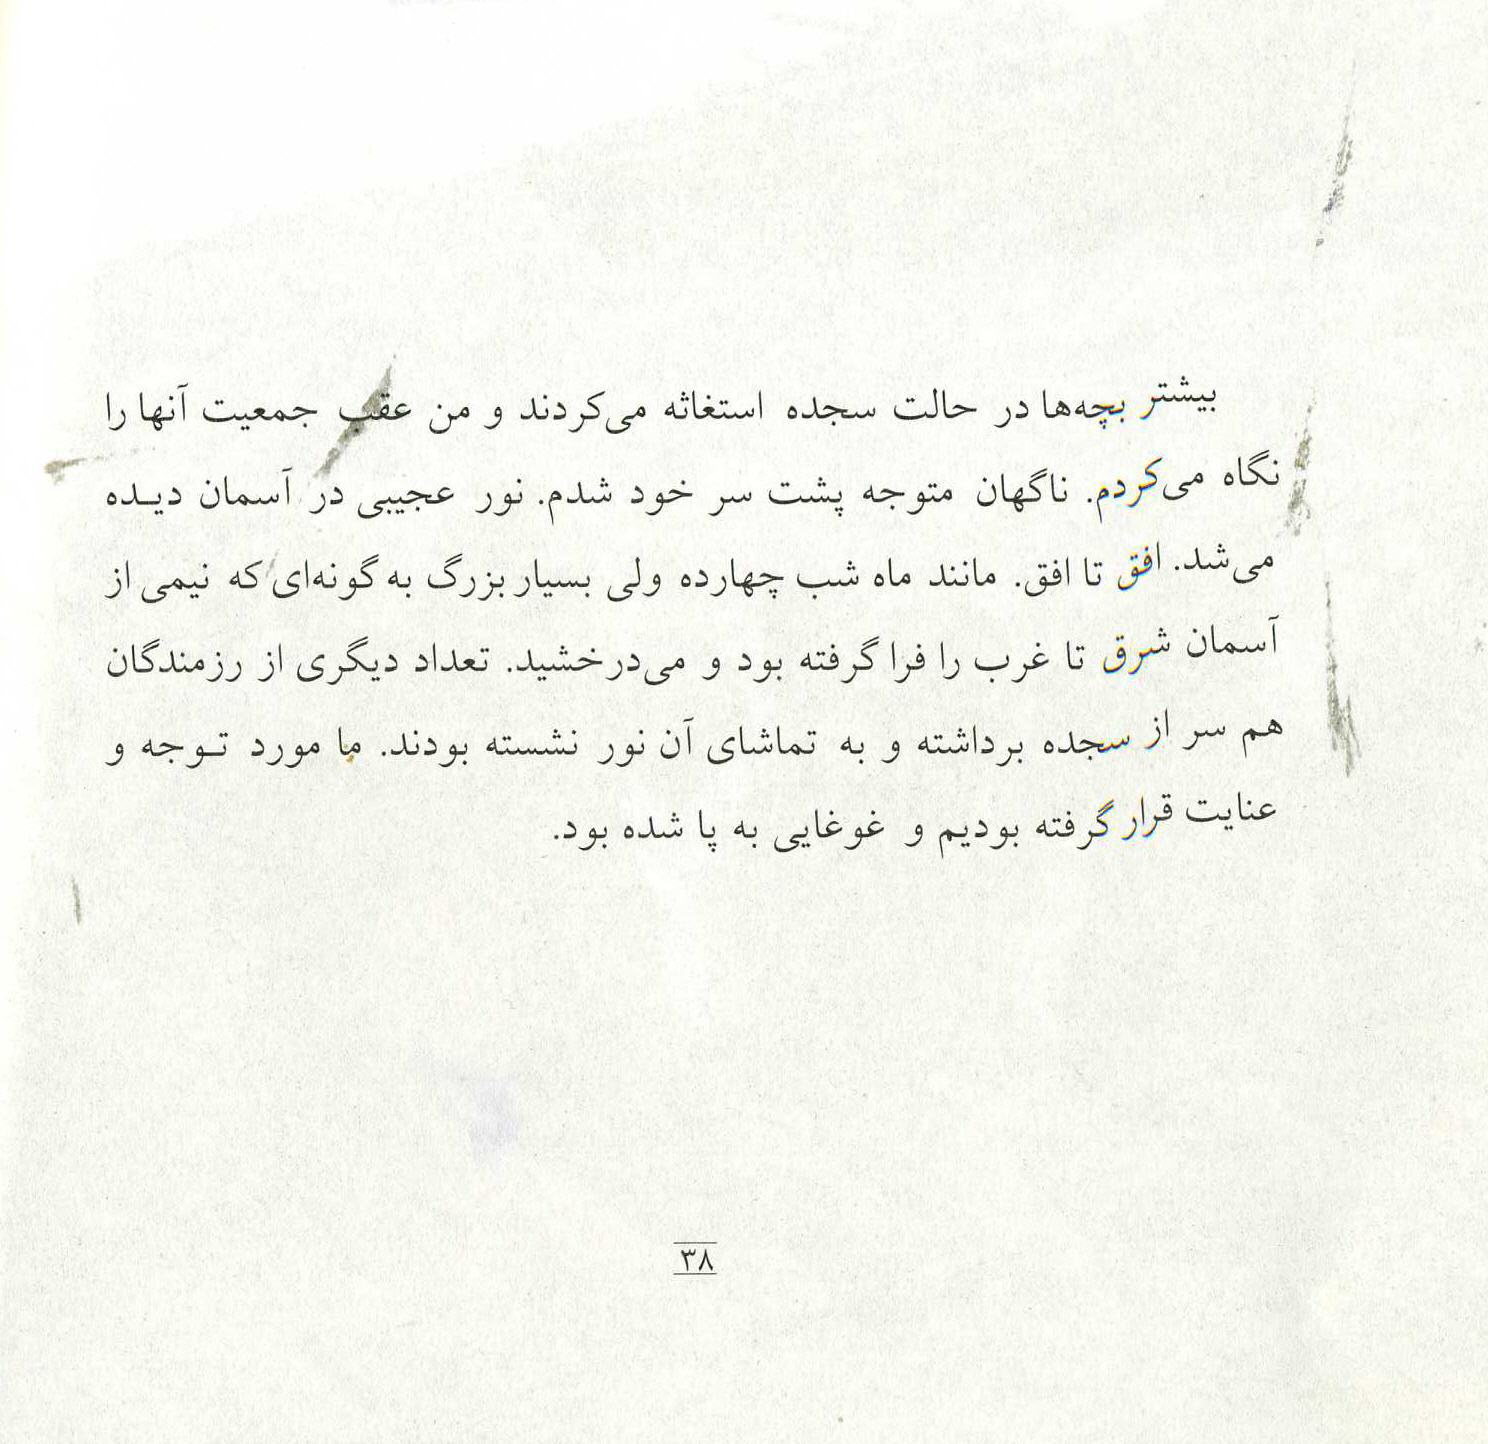 بیشتر بچه‌ها در حالت سجده استغاثه می‌کردند و من عقب جمعیت آنها را
نگاه می‌کردم. ناگهان متوجه پشت سر خود شدم. نور عجیبی در آسمان دیـده
می‌شد. افق تا افق. مانند ماه شب چهارده ولی بسیار بزرگ به گونه‌ای که نیمی از
آسمان شرق تا غرب را فرا گرفته بود و می‌درخشید. تعداد دیگری از رزمندگان
هم سر از سجده برداشته و به تماشای آن نور نشسته بودند. ما مورد تـوجه و
عنایت قرار گرفته بودیم و غوغایی به پا شده بود.
۳۸